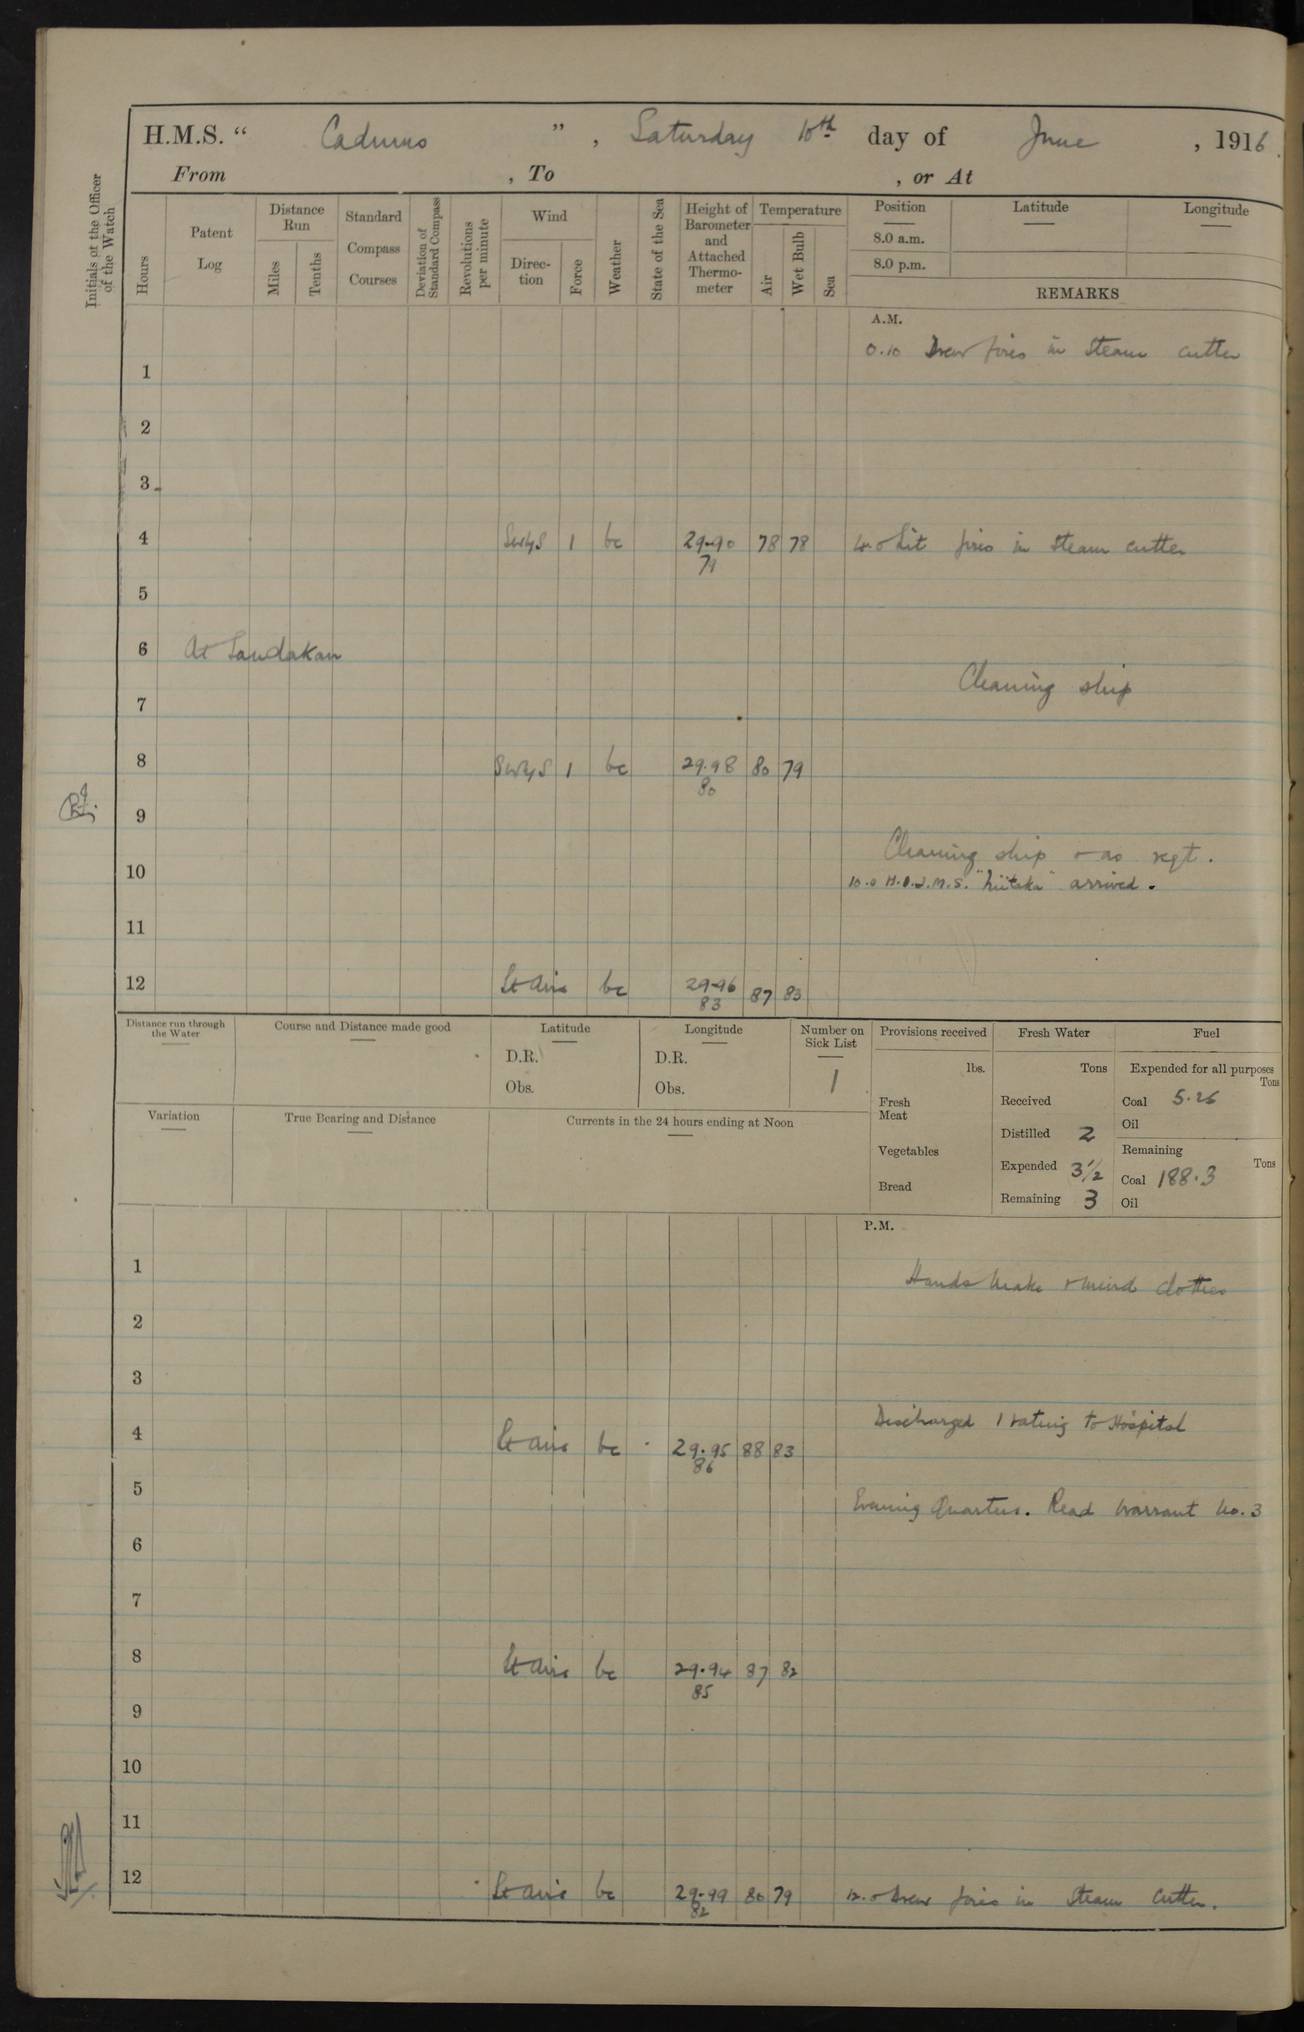 H.M.S. “ Cadmus ”, Saturday 10th day of June, 1916.
From , To , or At
Initials of the Officer of the Watch
Hours
Patent Log
Distance Run
Miles
Tenths
Standard Compass Courses
Deviation of Standard Compass
Revolutions per minute
Wind
Direction
Force
Weather
State of the Sea
Height of Barometer and Attached Thermometer
Temperature
Air
Wet Bulb
Sea
Position
8.0 a.m.
8.0 p.m.
Latitude
Longitude
REMARKS
A.M.
0.10 Drew fires in steam cutter
1
2
3
4 SWbyS 1 bc 29.90 78 78 4.0 Lit fires in steam cutter
71
5
6 At Sandakan
Cleaning ship
7
8 SWbyS 1 bc 29.98 80 79
80
9
Cleaning ship + as reqt.
10
10.0 H.I.J.M.S. "Niitaka" arrived.
11
12 Lt airs bc 29.96 87 83
83
Distance run through the Water
Course and Distance made good
Latitude
D.R.
Obs.
Longitude
D.R.
Obs.
Number on Sick List
1
Provisions received
lbs.
Fresh Meat
Vegetables
Bread
Fresh Water
Tons
Received
Distilled 2
Expended 3½
Remaining 3
Fuel
Expended for all purposes
Tons
Coal 5.26
Oil
Remaining
Tons
Coal 188.3
Oil
Variation
True Bearing and Distance
Currents in the 24 hours ending at Noon
P.M.
1
Hands make + mend clothes
2
3
Discharged 1 rating to Hospital
4 Lt airs bc 29.95 88 83
86
5
Evening Quarters. Read Warrant No. 3
6
7
8 Lt airs bc 29.94 87 82
85
9
10
11
12 Lt airs bc 29.99 80 79 12.0 Drew fires in steam cutter.
82